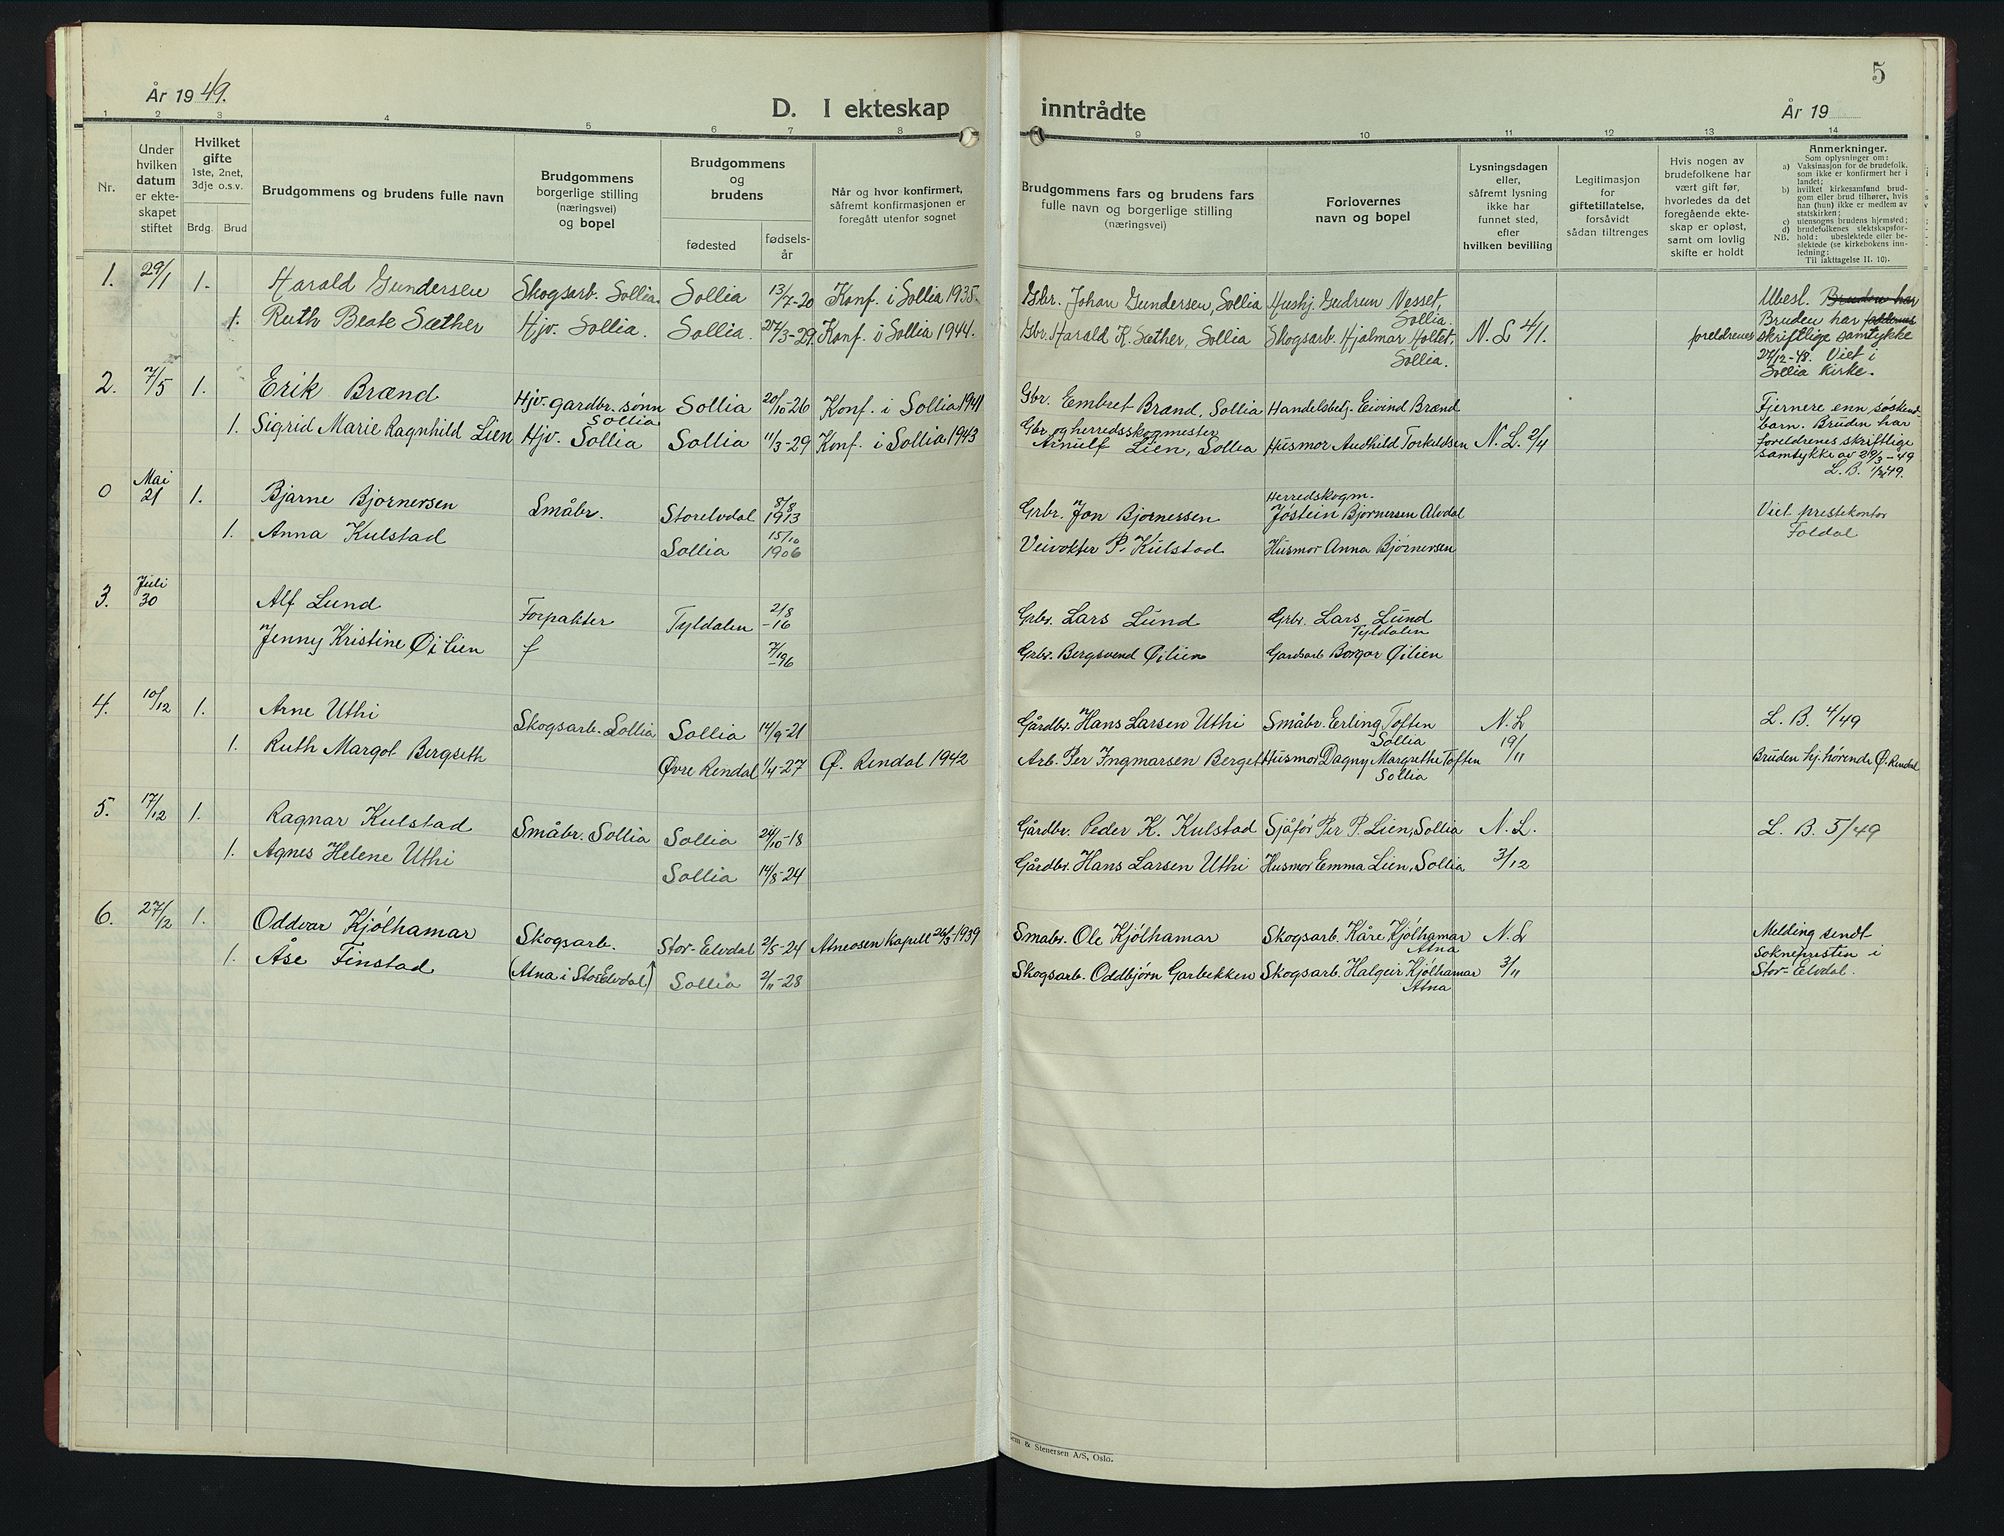 År 1949.
D. I ekteskap inntrådte
År 19
5
1 2 3 4 5 6 7 8 9 10 11 12 13 14
Nr.
Under hvilken datum er ekteskapet stiftet
Hvilket gifte 1ste, 2net, 3dje o.s.v.
Brdg. Brud
Brudgommens og brudens fulle navn
Brudgommens borgerlige stilling (næringsvei) og bopel
Brudgommens og brudens
fødested
fødselsår
Når og hvor konfirmert, såfremt konfirmasjonen er foregått utenfor sognet
Brudgommens fars og brudens fars fulle navn og borgerlige stilling (næringsvei)
Forlovernes navn og bopel
Lysningsdagen eller, såfremt lysning ikke har funnet sted, efter hvilken bevilling
Legitimasjon for giftetillatelse, forsåvidt sådan tiltrenges
Hvis nogen av brudefolkene har vært gift før, hvorledes da det foregående ekteskap er opløst, samt om lovlig skifte er holdt
Anmerkninger.
Som oplysninger om:
a) Vaksinasjon for de brudefolk, som ikke er konfirmert her i landet;
b) hvilket kirkesamfund brudgom eller brud tilhører, hvis han (hun) ikke er medlem av statskirken;
c) utensogns brudens hjemsted;
d) brudefolkenes slektskapsforhold: ubeslektede eller beslektede (se kirkebokens innledning:
NB.
Til iakttagelse II. 10).
1. 29/1 1. Harald Gundersen Skogsarb. Sollia. Sollia 13/7-20 Konf. i Sollia 1935. Gbr. Johan Gundersen, Sollia Hushj. Gudrun Vesset, Sollia. Ubesl. Bruden har
1. Ruth Beate Sæther Hjv. Sollia. Sollia. 27/3-29 Konf. i Sollia 1944. Gbr. Harald K. Sæther, Sollia Skogsarb. Hjalmar Holtet, Sollia. N. L 4/1. foreldrenes Bruden har skriftlige samtykke 27/12-48. Viet i Sollia kirke.
2. 7/5 1. Erik Brænd Hjv. gardbr. sønn Sollia Sollia 20/10-26 Konf. i Sollia 1941 Gbr. Embret Brænd, Sollia Handelsbetj. Eivind Brænd Fjernere enn søskenbarn. Bruden har
1. Sigrid Marie Ragnhild Lien Hjv. Sollia Sollia 11/3-29 Konf. i Sollia 1943 Gbr. og herredsskogmester Arnulf Lien, Sollia Husmor Audhild Torkildsen N. L. 2/4 foreldrenes skriftlige samtykke av 29/3-49 L. B. 1/49.
0 Mai 21 1. Bjarne Bjørnersen Småbr. Storelvdal 8/8 1913 Grbr. Jon Bjørnessen Herredskogm. Jøstein Bjørnersen Alvdal Viet prestekontor Foldal
1. Anna Kulstad Sollia 15/10 1906 Veivokter P. Kulstad Husmor Anna Bjørnersen
3. Juli 30 Alf Lund Forpakter Tyldalen 2/8-16 Grbr. Lars Lund Grbr. Lars Lund Tyldalen
Jenny Kristine Øilien f 7/10-96 Grbr. Bergsvend Øilien Gardsarb Borgar Øilien
4. 10/12 1. Arne Uthi Skogsarb. Sollia Sollia 14/9-21 Gårdbr. Hans Larsen Uthi Småbr. Erling Toften Sollia N. L 19/11 L. B. 4/49
1. Ruth Margot Bergseth Øvre Rendal 1/4-27 Ø. Rendal 1942 Arb. Per Ingmarsen Berget Husmor Dagny Margrethe Toften Sollia Bruden hj. hørende Ø. Rendal
5. 17/12 1. Ragnar Kulstad Småbr. Sollia Sollia 24/10-18 Gårdbr. Peder K. Kulstad Sjåfør Per P. Lien, Sollia N. L. L. B. 5/49
1. Agnes Helene Uthi Sollia 14/8-24 Gårdbr. Hans Larsen Uthi Husmor Emma Lien, Sollia 3/12
6. 27/12 1. Oddvar Kjølhamar Skogsarb. Stor-Elvdal 2/5-24 Atneosen Kapell 26/3-1939 Småbr. Ole Kjølhamar Skogsarb. Kåre Kjølhamar Atna N. L Melding sendt
1. Åse Finstad (Atna i StorElvdal) Sollia 2/11-28 Skogsarb. Oddbjørn Garbekken Skogsarb. Halgeir Kjølhamar Atna 3/11 Soknepresten i Stor-Elvdal.
& Stenersen A/S, Oslo.